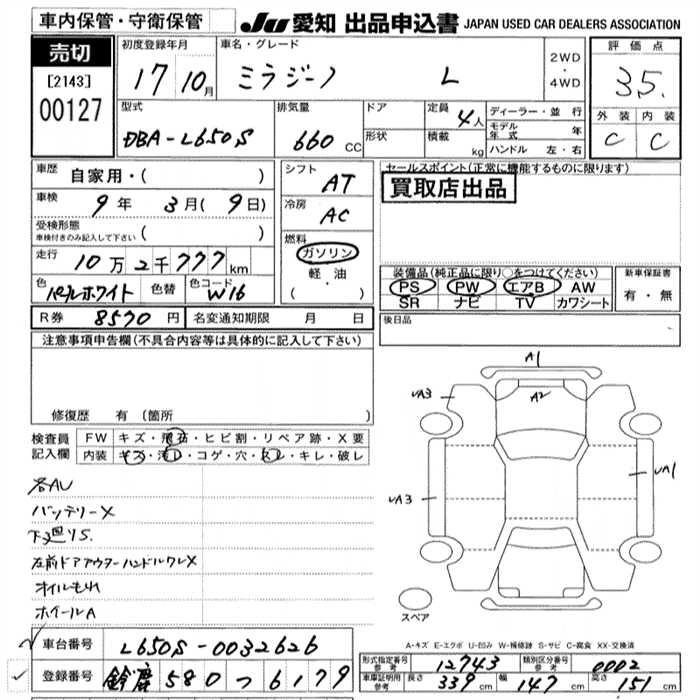 車内保管・守衛保管
JU 愛知 出品申込書 JAPAN USED CAR DEALERS ASSOCIATION
売切
[2143]
00127
初度登録年月
17 10月
車名・グレード
ミラジーノ L
2WD
・
4WD
評価点
3.5
外装 内装
C C
型式
DBA-L650S
排気量
660 CC
ドア
形状
定員 4人
積載 kg
ディーラー・並行
モデル年式 年
ハンドル 左・右
車歴 自家用・( )
車検 9年 3月(9日)
受検形態
車検付きのみ記入して下さい ( )
走行 10万2千777km
色 パールホワイト 色替 色コード W16
シフト AT
冷房 AC
燃料
ガソリン
軽油
( ・ )
セールスポイント(正常に機能するものに限ります)
買取店出品
装備品(純正品に限り○をつけてください)
PS PW エアB AW
SR ナビ TV カワシート
新車保証書
有・無
R券 8570円 名変通知期限 月 日
後日品
注意事項申告欄(不具合内容等は具体的に記入して下さい)
修復歴 有(箇所 )
検査員記入欄
FW キズ・飛石・ヒビ割・リペア跡・X要
内装 キズ・汚レ・コゲ・穴・スレ・キレ・破レ
各AU
バッテリーX
下廻りS.
左前ドアアウターハンドルワレX
オイルもれ
ホイールA
A1
A2
UA3
UA3
UA1
スペア
A-キズ E-エクボ U-凹み W-補修跡 S-サビ C-腐食 XX-交換済
車台番号 L650S-0032626
登録番号 鈴鹿 580 つ 6179
形式指定番号参考 12743 類別区分番号参考 0002
車庫証明用参考 長さ 339cm 幅 147cm 高さ 151cm